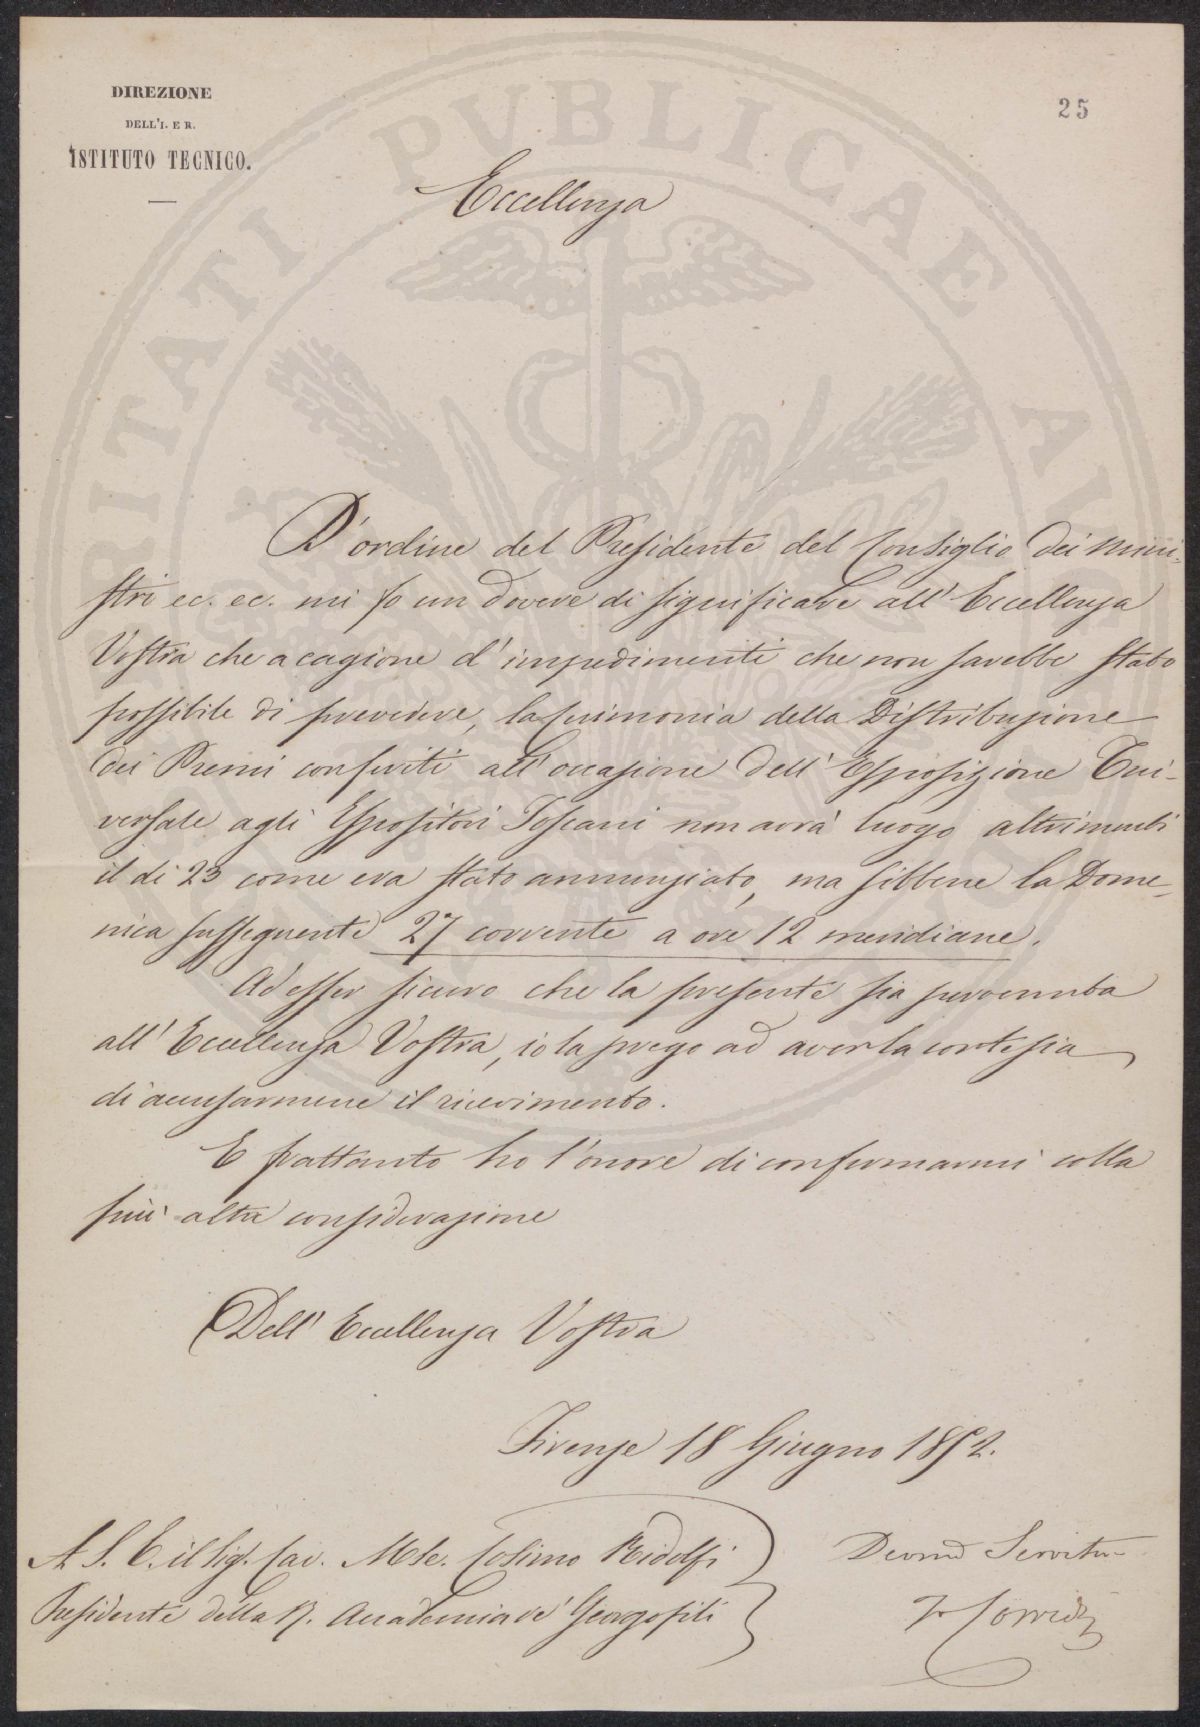 DIREZIONE
DELL'I. E R.
ISTITUTO TECNICO.
25
PROSPERITATI PVBLICAE AVGENDAE
Eccellenza
D'ordine del Presidente del Consiglio dei Mini-
stri ec. ec. mi fo un dovere di significare all'Eccellenza
Vostra che a cagione d'impedimenti che non sarebbe stato
possibile di prevedere, la cerimonia della Distribuzione
dei Premi conferiti all'occasione dell'Esposizione Uni-
versale agli Espositori Toscani non avrà luogo altrimenti
il dì 23 come era stato annunziato, ma sibbene la Dome-
nica susseguente 27 corrente a ore 12 meridiane.
Ad esser sicuro che la presente sia pervenuta
all'Eccellenza Vostra, io la prego ad aver la cortesia
di accusarmene il ricevimento.
E frattanto ho l'onore di confermarmi colla
più alta considerazione
Dell'Eccellenza Vostra
Firenze 18 Giugno 1852.
A S. E. il Sig. Cav. Mse. Cosimo Ridolfi
Presidente della R. Accademia de' Georgofili
Devmo Servitre
F Corridi